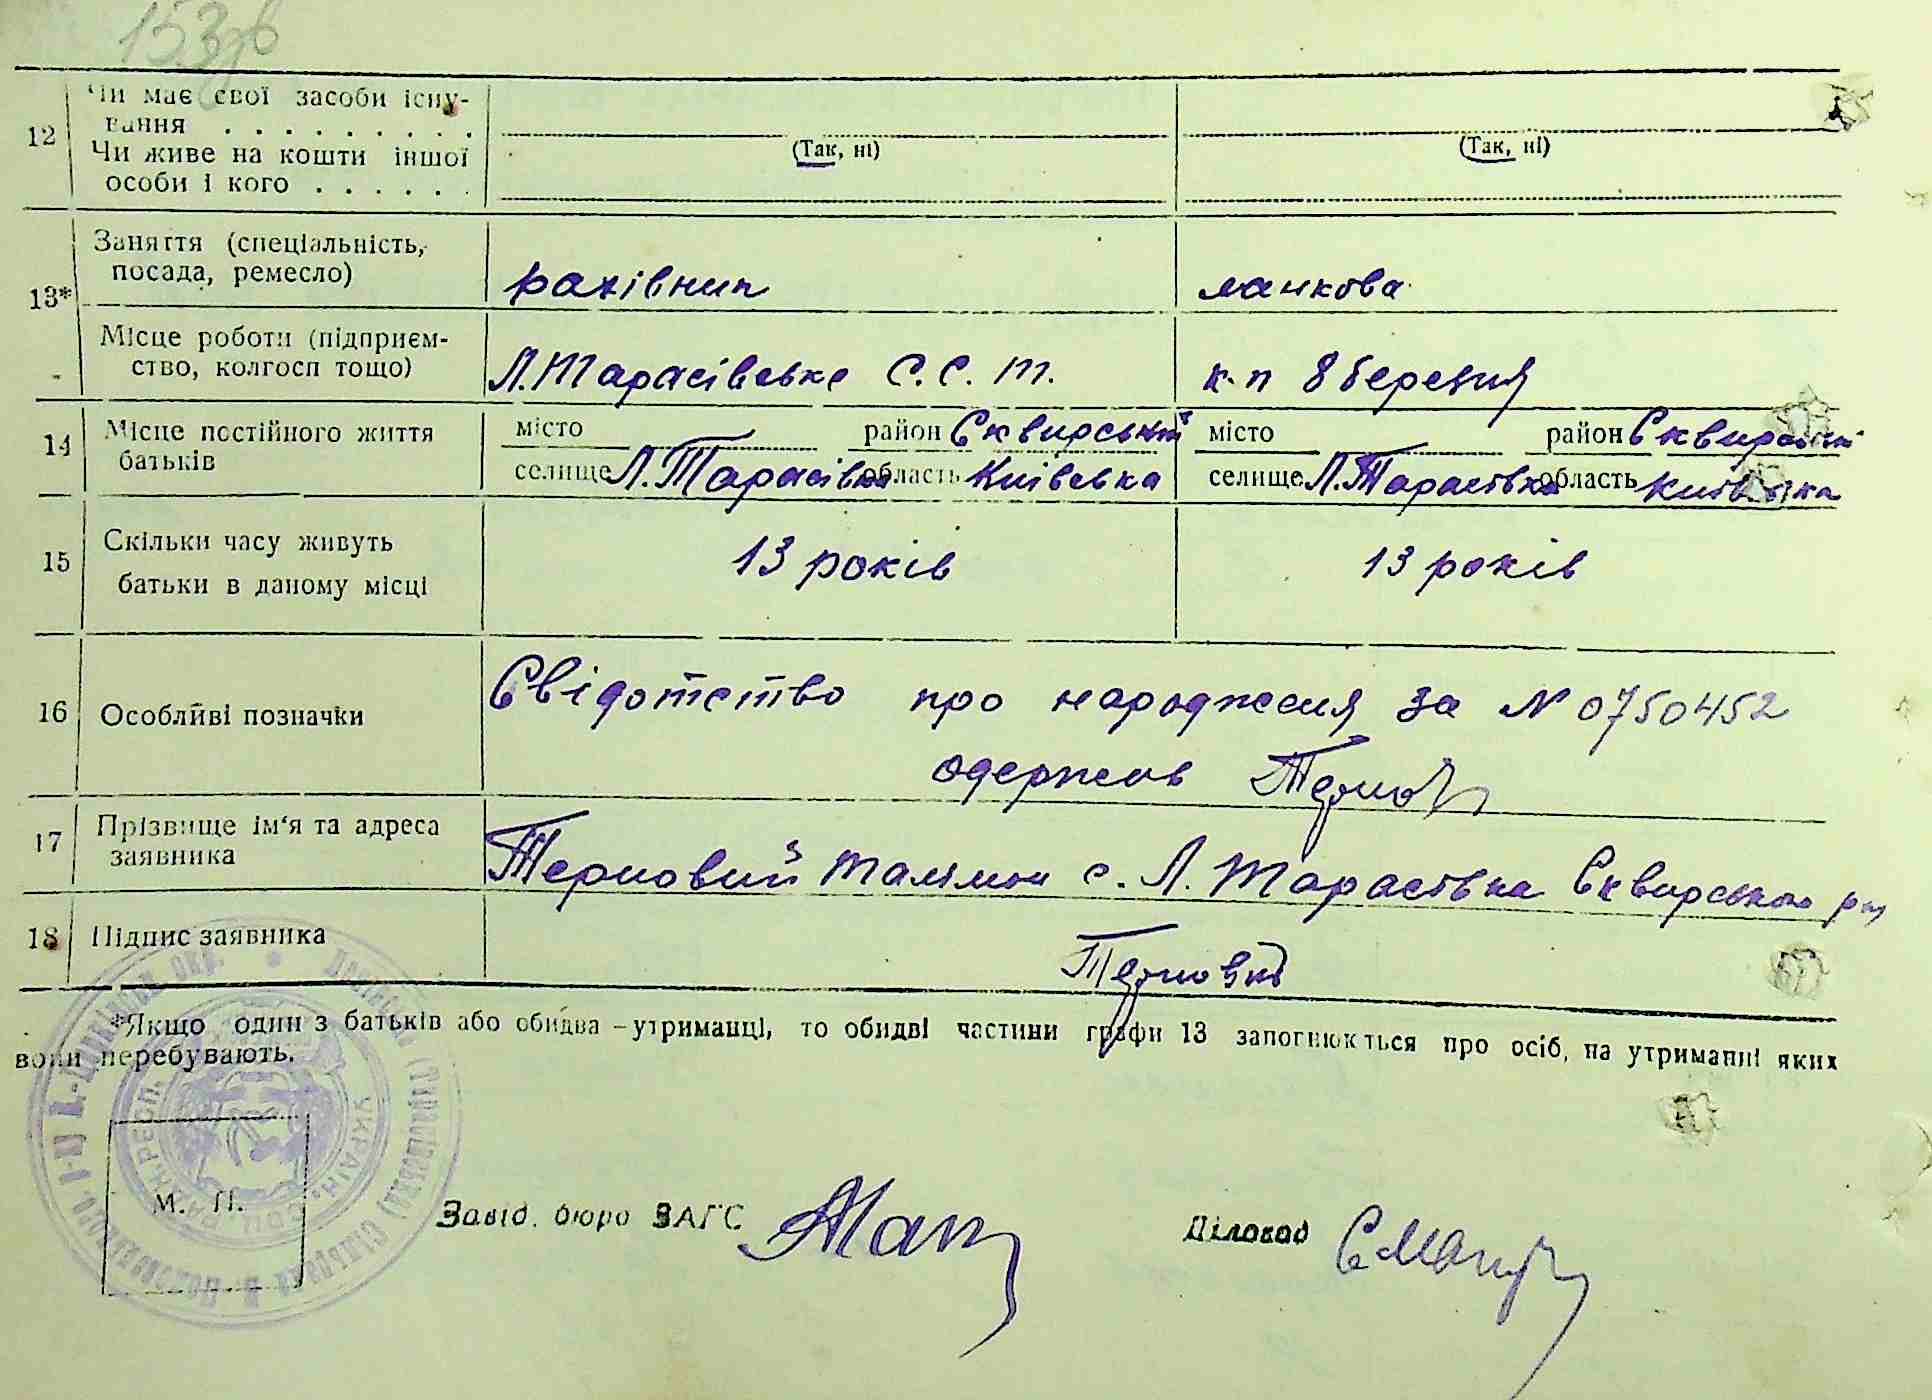 153зв
12
Чи має свої засоби існу-
вання . . . . . . . . .
Чи живе на кошти іншої
особи і кого . . . . . .
(Так, ні)
(Так, ні)
13*
Заняття (спеціальність,
посада, ремесло)
рахівник
ланкова
Місце роботи (підприєм-
ство, колгосп тощо)
Л.Тарасівське С.С.Т.
к-п 8 березня
14
Місце постійного життя
батьків
місто район Сквирський
селище Л.Тарасівка область Київська
місто район Сквирський
селище Л.Тарасівка область Київська
15
Скільки часу живуть
батьки в даному місці
13 років
13 років
16
Особливі позначки
Свідотство про народження за № 0750452
одержав
17
Прізвище ім'я та адреса
заявника
Терновий с. Л. Тарасівка Сквирського
18
Підпис заявника
*Якщо один з батьків або обидва – утриманці, то обидві частини графи 13 заповнюються про осіб, на утриманні яких
вони перебувають.
УКРАЇН. СОЦ. РАД. РЕСП.
М. П.
Завід. бюро ЗАГС
Діловод